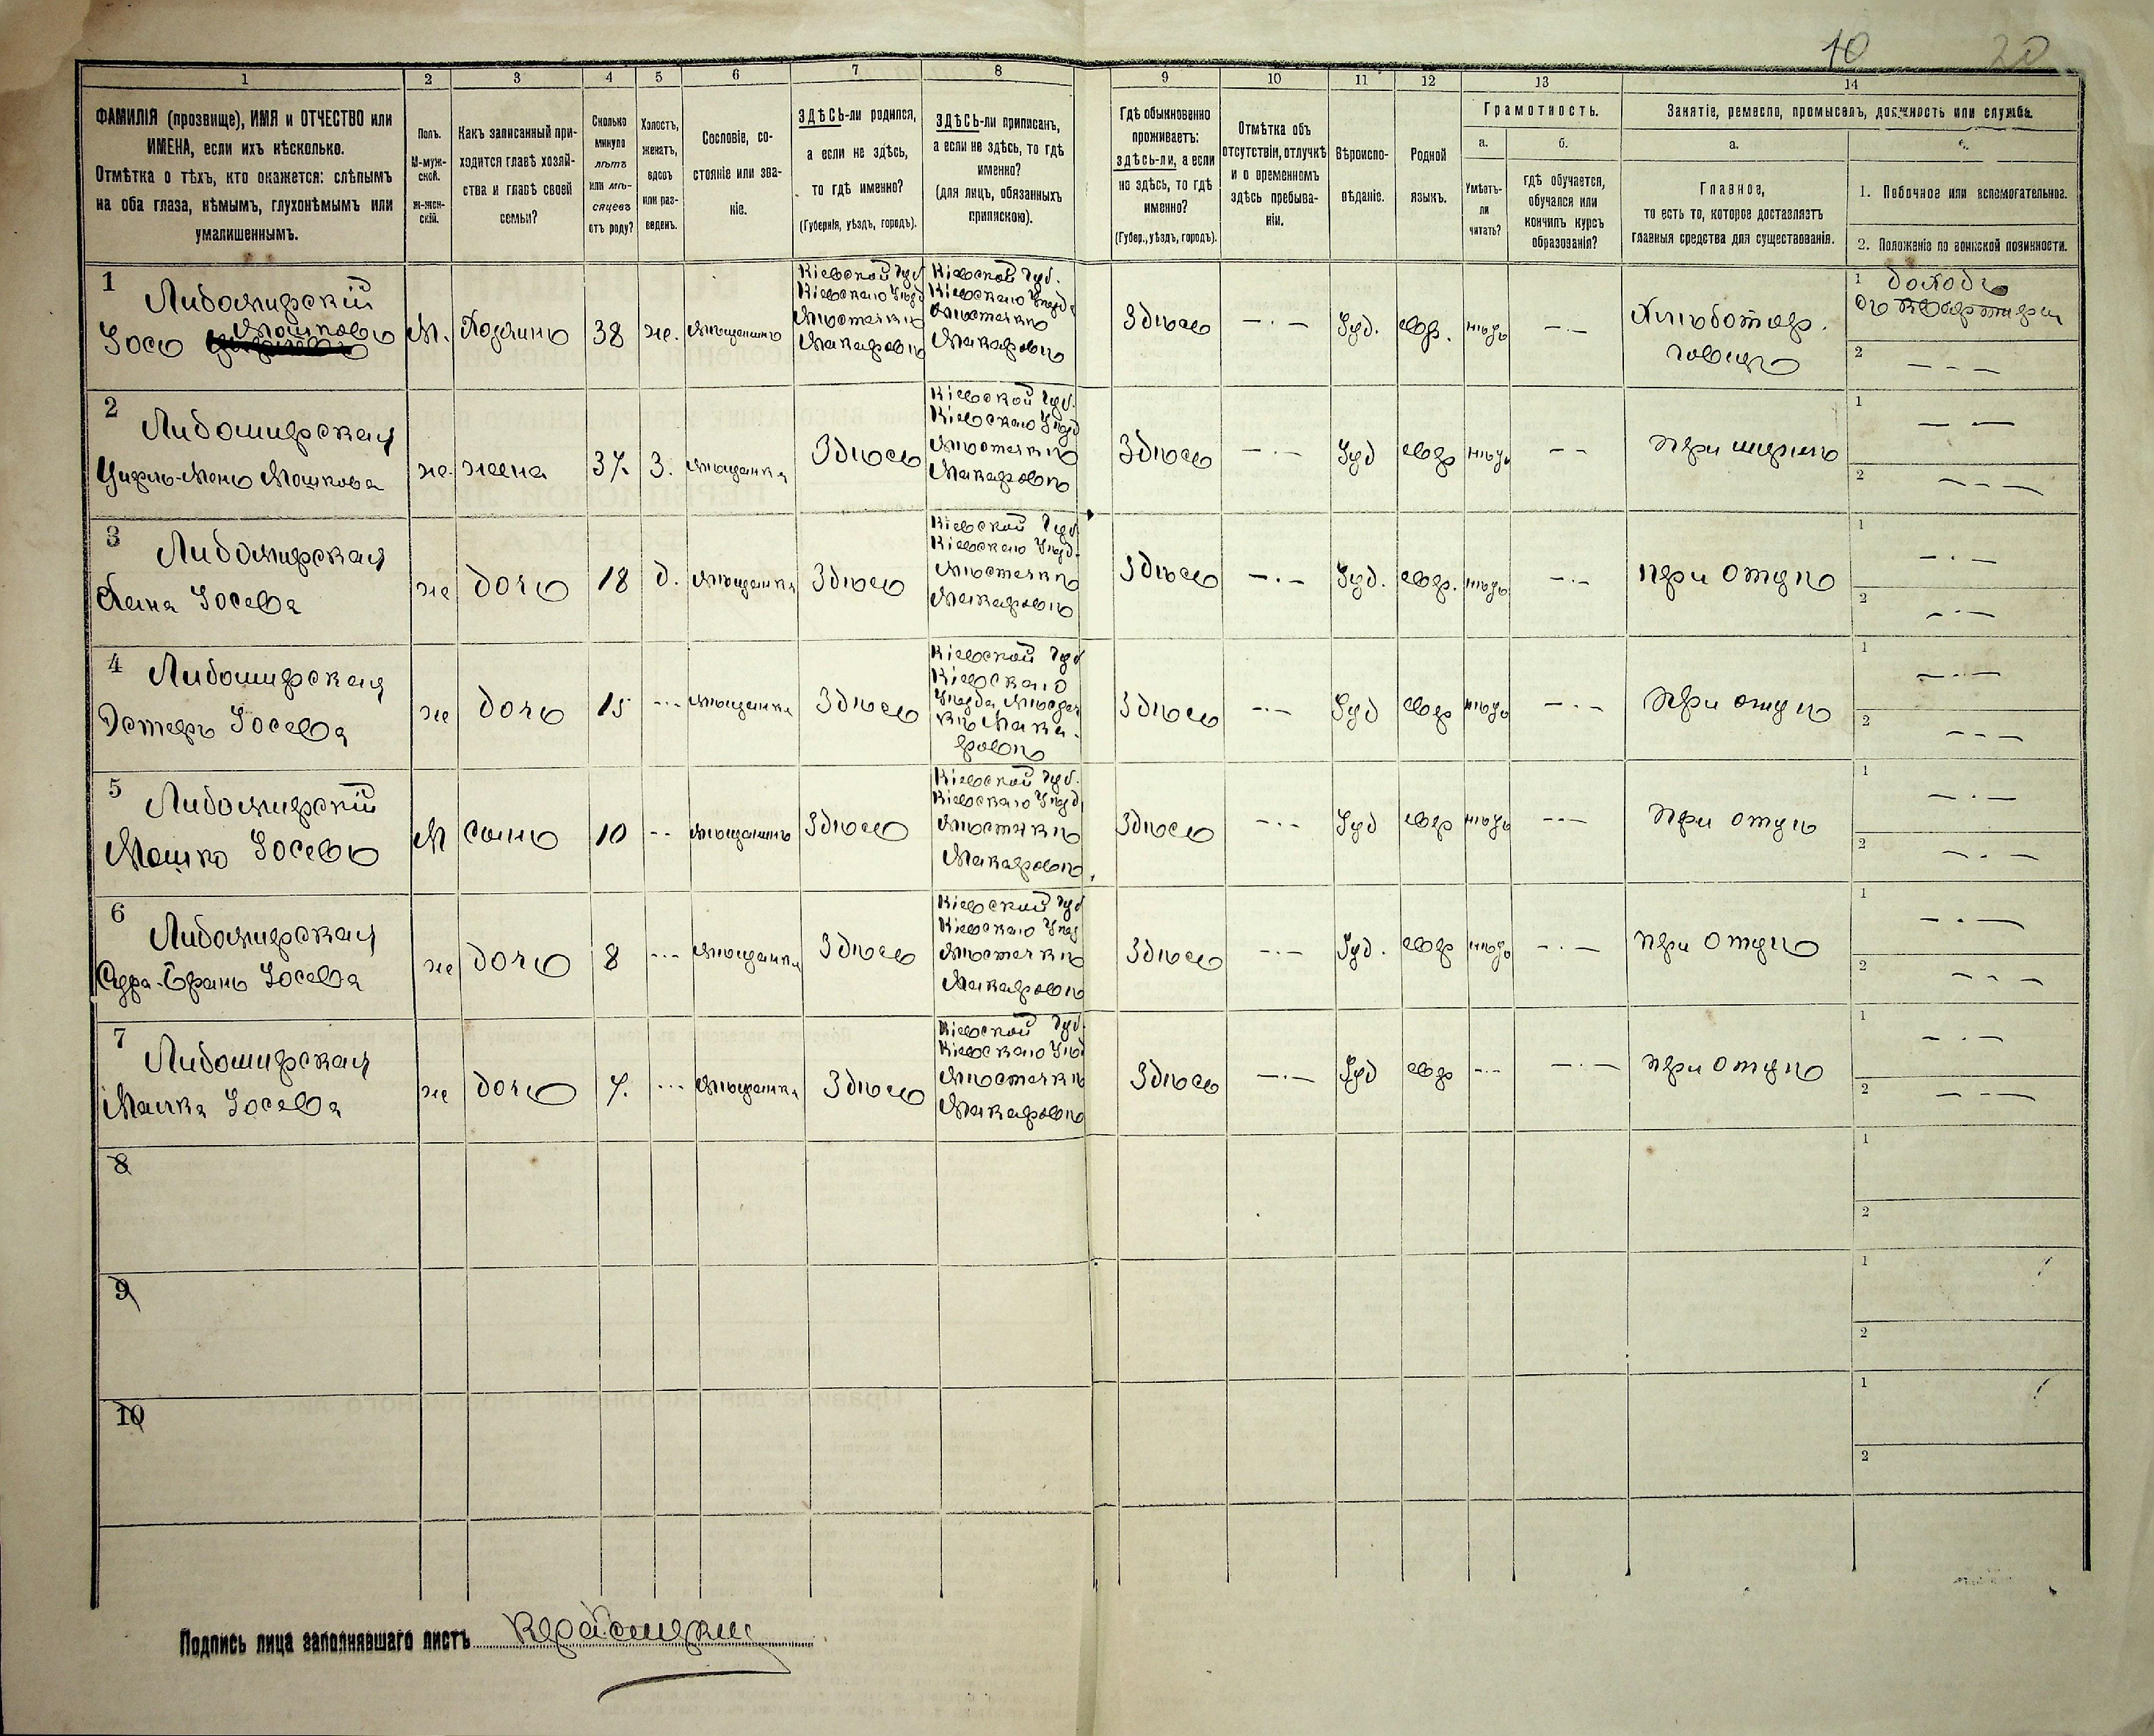 10 20
1 2 3 4 5 6 7 8 9 10 11 12 13 14
ФАМИЛІЯ (прозвище), ИМЯ и ОТЧЕСТВО или
ИМЕНА, если ихъ нѣсколько.
Отмѣтка о тѣхъ, кто окажется: слѣпымъ
на оба глаза, нѣмымъ, глухонѣмымъ или
умалишеннымъ.
Полъ.
М-муж-
ской.
Ж-жен-
скій.
Какъ записанный при-
ходится главѣ хозяй-
ства и главѣ своей
семьи?
Сколько
минуло
лѣтъ
или мѣ-
сяцевъ
отъ роду?
Холостъ,
женатъ,
вдовъ
или раз-
веденъ.
Сословіе, со-
стояніе или зва-
ніе.
ЗДѢСЬ-ли родился,
а если не здѣсь,
то гдѣ именно?
(Губернія, уѣздъ, городъ).
ЗДѢСЬ-ли приписанъ,
а если не здѣсь, то гдѣ
именно?
(для лицъ, обязанныхъ
припискою).
Гдѣ обыкновенно
проживаетъ:
здѣсь-ли, а если
не здѣсь, то гдѣ
именно?
(Губер., уѣздъ, городъ).
Отмѣтка объ
отсутствіи, отлучкѣ
и о временномъ
здѣсь пребыва-
ніи.
Вѣроиспо-
вѣданіе.
Родной
языкъ.
Грамотность.
а.
Умѣетъ-
ли
читать?
б.
гдѣ обучается,
обучался или
кончилъ курсъ
образованія?
Занятіе, ремесло, промыселъ, должность или служба.
а.
Главное,
то есть то, которое доставляетъ
главныя средства для существованія.
1. Побочное или вспомогательное.
2. Положеніе по воинской повинности.
1
Либомирскій
Іось Мошковъ
М.
Хозяинъ
38
же.
мѣщанинъ
Кіевской Губ
Кіевскаго Уѣзд
Мѣстечкѣ
Макаровѣ
Кіевской Губ.
Кіевскаго Уѣзд.
Мѣстечкѣ
Макаровѣ
Здѣсь
— . —
Іуд.
евр.
нѣтъ
— . —
Хлѣботор.
говецъ
1 доходъ
съ квартиры
2 — — —
2
Либомирская
Мошкова
же.
жена
37.
З.
мѣщанка
Здѣсь
Кіевской Губ.
Кіевскаго Уѣзд
Мѣстечкѣ
Макаровѣ
Здѣсь
— . —
Іуд
евр
нѣтъ
— —
при мужѣ
1 — —
2 — — —
3
Либомирская
Хана Іосева
же
дочь
18
д.
мѣщанка
Здѣсь
Кіевской Губ
Кіевскаго Уѣзд.
Мѣстечкѣ
Макаровѣ
Здѣсь
— . —
Іуд.
евр.
нѣтъ
— . —
при отцѣ
1 — . —
2 — . —
4
Либомирская
Эстеръ Іосева
же
дочь
15
---
мѣщанка
Здѣсь
Кіевской Губ
Кіевскаго
Уѣзда Мѣстеч
кѣ Мака-
ровѣ
Здѣсь
— . —
Іуд
евр
нѣтъ
— . —
при отцѣ
1 — . —
2 — — —
5
Либомирскій
Мошко Іосевъ
М
сынъ
10
--
мѣщанинъ
Здѣсь
Кіевской Губ.
Кіевскаго Уѣзд
Мѣстечкѣ
Макаровѣ
Здѣсь
— . —
Іуд
евр
нѣтъ
— . —
при отцѣ
1 — . —
2 — . —
6
Либомирская
Іосева
же
дочь
8
---
мѣщанка
Здѣсь
Кіевской Губ
Кіевскаго Уѣзд
Мѣстечкѣ
Макаровѣ
Здѣсь
— . —
Іуд.
евр
нѣтъ
— . —
при отцѣ
1 — . —
2 — — —
7
Либомирская
Малка Іосева
же
дочь
7.
---
мѣщанка
Здѣсь
Кіевской Губ.
Кіевскаго Уѣзд
Мѣстечкѣ
Макаровѣ
Здѣсь
— . —
Іуд
евр
- . -
— . —
при отцѣ
1 — . —
2 — . —
8
1
2
9
1
2
10
1
2
Подпись лица заполнявшаго листъ